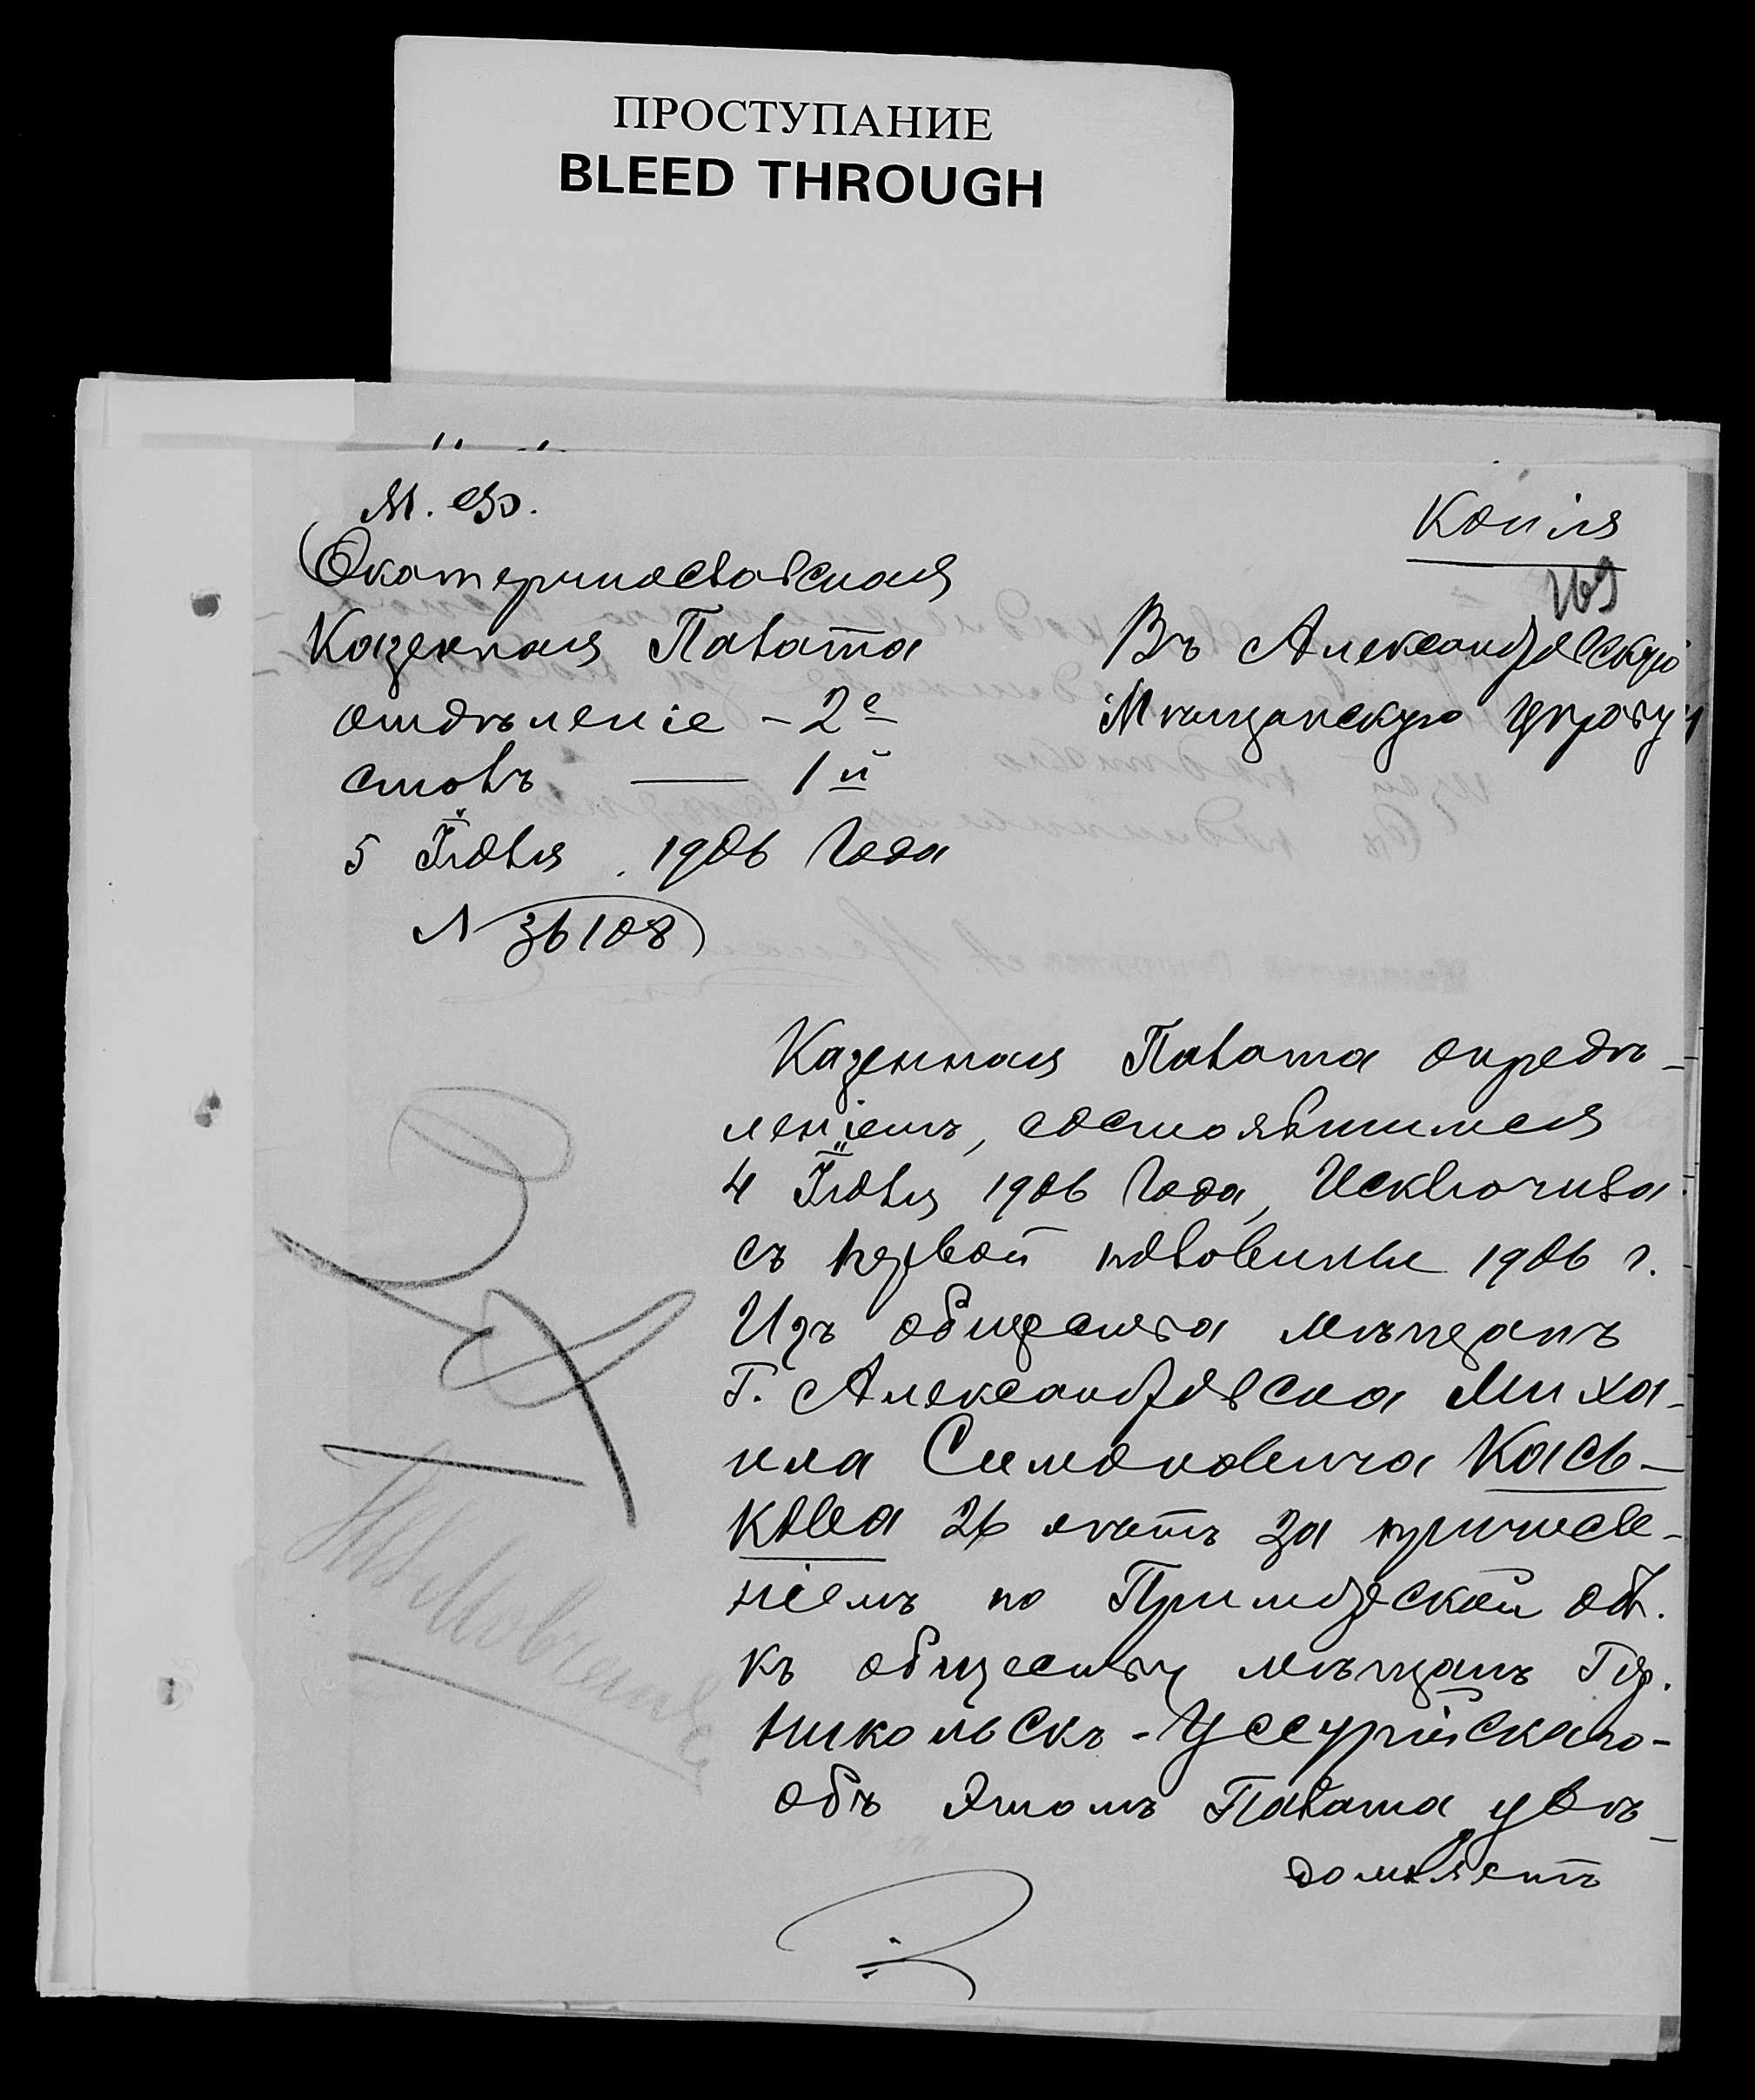 ПРОСТУПАНИЕ
BLEED THROUGH
М. Ф.
Екатеринославская
Казенная Палата
отдѣленіе - 2е
столъ — 1й
5 Іюля 1906 года
№ 36108
Копія
169
Въ Александровскую
Мѣщанскую Управу
Казенная Палата опредѣ-
леніемъ, состоявшимся
4 Іюля 1906 года, Исключила
съ первой половины 1906 г.
Изъ общества мѣщанъ
Г. Александровска Миха-
ила Симоновича Кась-
кова 26 лѣтъ за причисле-
ніемъ по Приморской обл.
къ обществу мѣщанъ Гор.
Никольскъ-Уссурійскаго-
объ этомъ Палата увѣ-
домляетъ